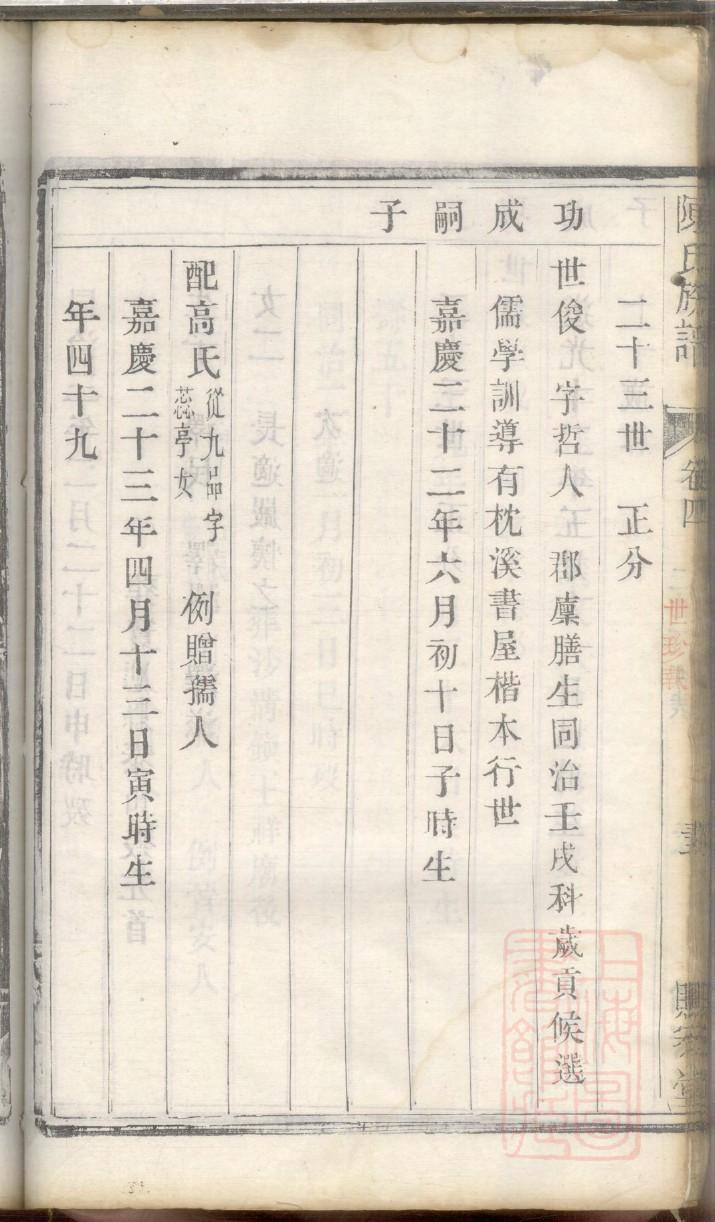 陳氏族譜
卷四
二十三世 正分
功成嗣子
世俊 字哲人 郡廩膳生同治壬戌科歲貢候選
儒學訓導有枕溪書屋楷本行世
嘉慶二十二年六月初十日子時生
配高氏 從九品字芯亭女 例贈孺人
嘉慶二十三年四月十三日寅時生
年四十九